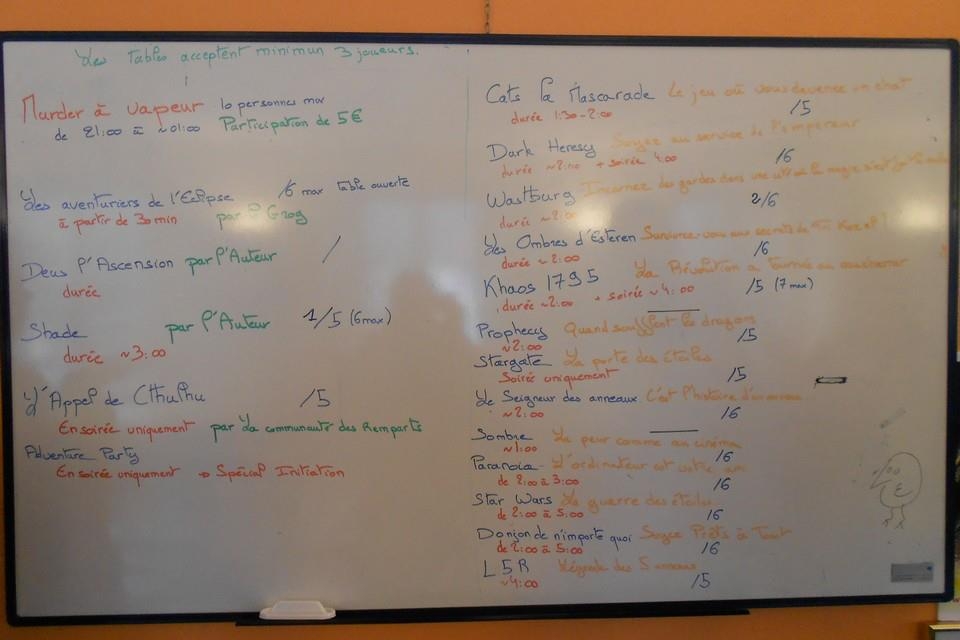 Les Tables acceptent minimun 3 joueurs.
Murder à vapeur 10 personnes max
de 21:00 à ~01:00 Participation de 5€
Les aventuriers de l'Eclipse /6 max table ouverte
à partir de 30 min par l' Grog
Deus l'Ascension par l'Auteur /
durée
Shade par l'Auteur 1/5 (6 max)
durée ~3:00
L'Appel de Cthulhu /5
En soirée uniquement par La communauté des Remparts
Adventure Party
En soirée uniquement → Spécial Initiation
Cats la Mascarade Le jeu où vous devenez un chat
durée 1:30-2:00 /5
Dark Heresy Soyez au service de l'empereur
durée ~2:00 + soirée 4:00 /6
Wastburg Incarnez des gardes dans une où la magie
durée ~2:00 2/6
Les Ombres d'Esteren Survivrez-vous aux secrets de
durée ~2:00 /6
Khaos 1795 La Révolution a tourné au cauchemar
durée ~2:00 + soirée ~4:00 /5 (7 max)
Prophecy Quand soufflent les dragons
~2:00 /5
Stargate La porte des étoiles
Soirée uniquement /5
Le Seigneur des anneaux C'est l'histoire d'un anneau
~2:00 /6
Sombre La peur comme au cinéma
~1:00 /6
Paranoïa - L'ordinateur est votre ami
de 2:00 à 3:00 /6
Star Wars La guerre des étoiles
de 2:00 à 5:00 /6
Donjon de n'importe quoi Soyez Prêts à Tout
de 2:00 à 5:00 /6
L5R Légende des 5 anneaux
~4:00 /5